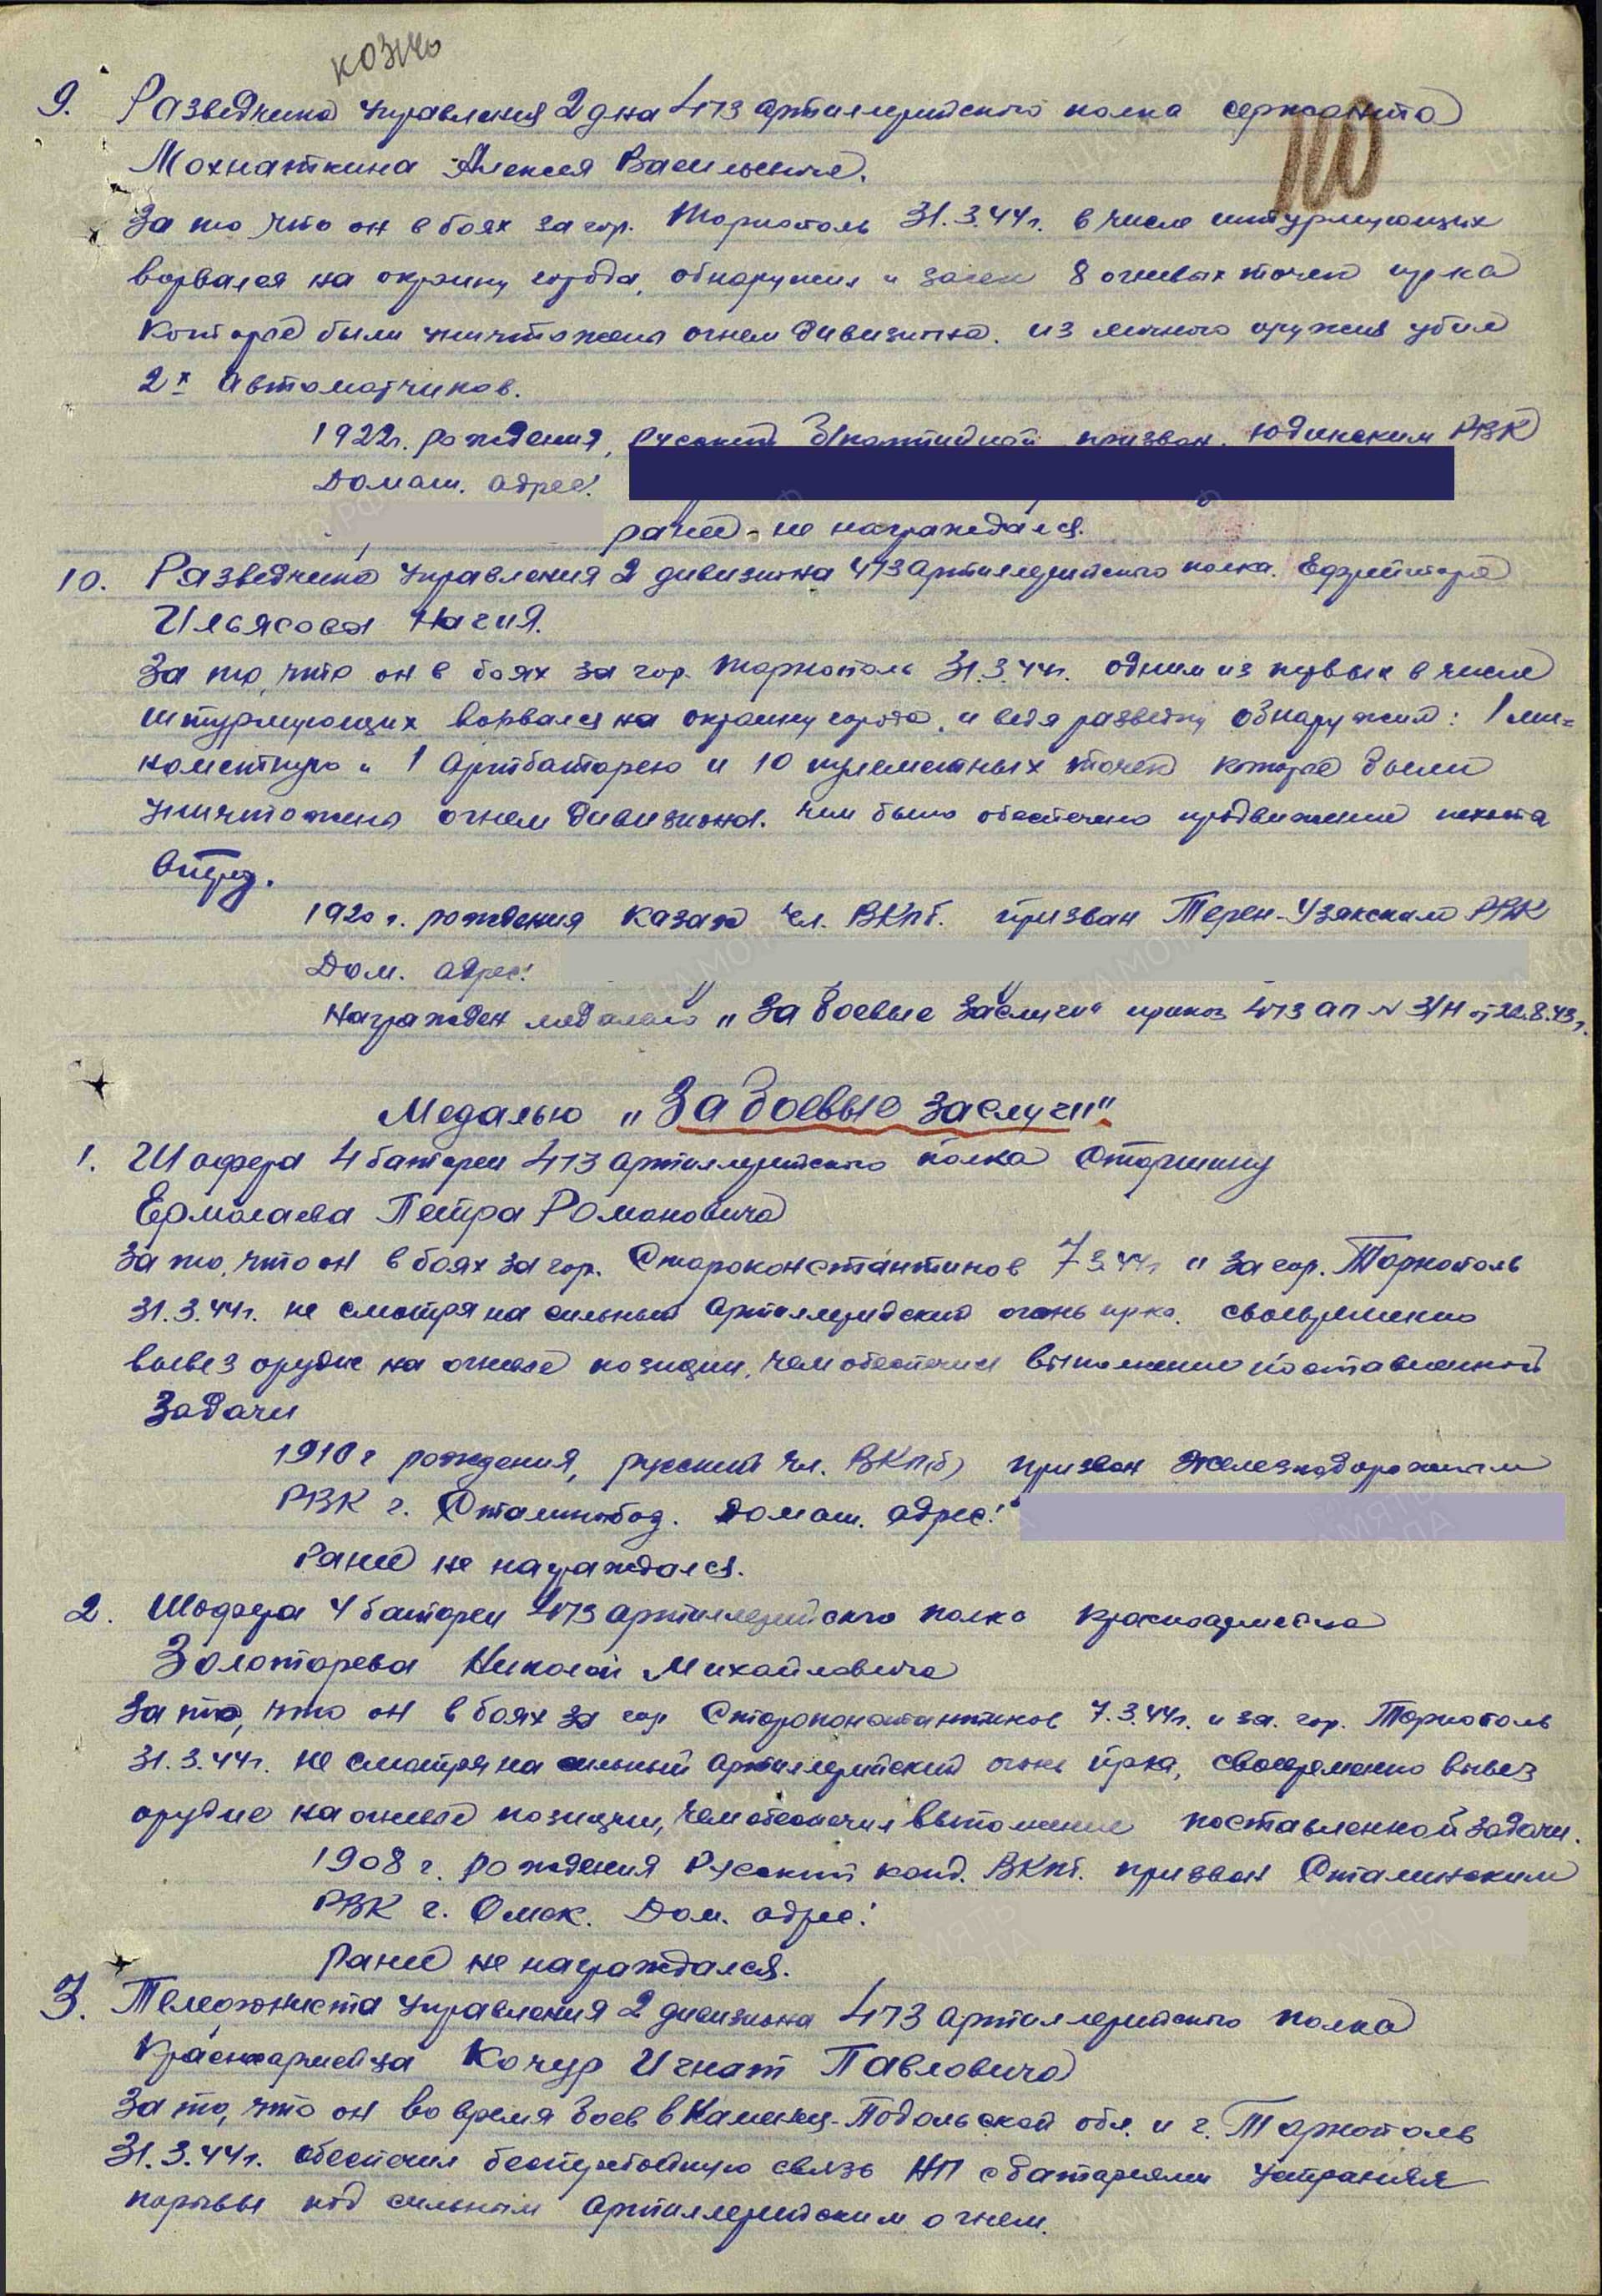 110
9. Разведчика управления 2 д-на 473 артиллерийского полка сержанта
Мохнаткина Алексея Васильевича.
За то, что он в боях за гор. Тарнополь 31.3.44г. в числе штурмующих
ворвался на окраину города, обнаружил и засек 8 огневых точек пр-ка
которые были уничтожены огнем дивизиона. из личного оружия убил
2х автоматчиков.
1922г. рождения, русский б/партийный призван Юдинским РВК
Домаш. адрес:
ранее не награждался.
10. Разведчика управления 2 дивизиона 473 артиллерийского полка. Ефрейтора
Ильясова Нагия.
За то, что он в боях за гор. Тарнополь 31.3.44г. одним из первых в числе
штурмующих ворвался на окраину города, и ведя разведку обнаружил: 1 ми-
нометную и 1 артбатарею и 10 пулеметных точек которые были
уничтожены огнем дивизиона. чем было обеспечено продвижение пехоты
вперед.
1920 г. рождения казах чл. ВКПб. призван Терен-Узякским РВК
Дом. адрес:
Награжден медалью „За боевые заслуги" приказ 473 ап N 3/н от 22.8.43г.
Медалью „За боевые заслуги"
1. Шофера 4 батареи 473 артиллерийского полка Старшину
Ермолаева Петра Романовича
За то, что он в боях за гор. Староконстантинов 7 3.44г и за гор. Тарнополь
31.3.44г. не смотря на сильный артиллерийский огонь пр-ка. своевременно
вывез орудие на огневые позиции, чем обеспечил выполнение поставленной
задачи
1910г рождения, русский чл. ВКП(б) призван Железнодорожным
РВК г. Сталинобад. Домаш. адрес:
Ранее не награждался.
2. Шофера 4 батареи 473 артиллерийского полка красноармейца
Золотарева Николай Михайловича
За то, что он в боях за гор Староконстантинов 7.3.44г. и за. гор. Тарнополь
31.3.44г. не смотря на сильный артиллерийский огонь пр-ка, своевременно вывез
орудие на огневые позиции, чем обеспечил выполнение поставленной задачи.
1908 г. рождения Русский канд. ВКПб. призван Сталинским
РВК г. Омск. Дом. адрес:
Ранее не награждался.
3. Телефониста управления 2 дивизиона 473 артиллерийского полка
Красноармейца Кочур Игнат Павловича
За то, что он во время боев в Каменец-Подольской обл. и г. Тарнополь
31.3.44г. обеспечил бесперебойную связь НП с батареями устраняя
порывы под сильным артиллерийским огнем.